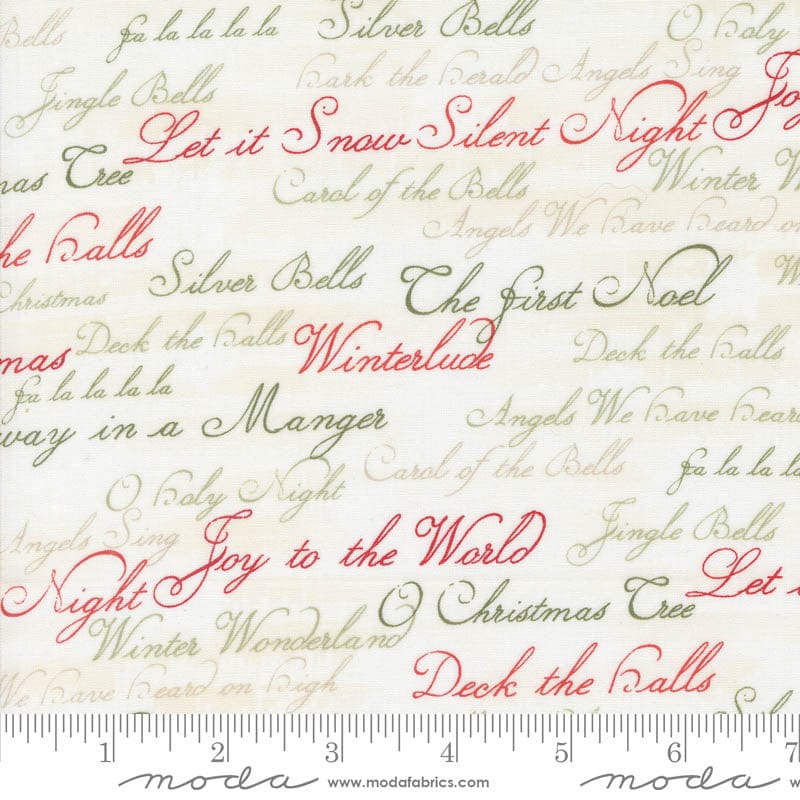 Bells fa la la la la Silver Bells O holy
Jingle Bells hark the herald Angels Sing Joy
Let it Snow Silent Night
mas Tree Carol of the Bells Winter W
Angels We have heard on
he halls Silver Bells The first Noel W
Christmas
mas Deck the halls Winterlude Deck the halls
fa la la la la
way in a Manger Angels We have heard
Carol of the Bells fa la la la
O holy Night
Angels Sing Joy to the World Jingle Bells
Night O Christmas Tree Let i
Winter Wonderland
We have heard on high Deck the halls
Sil
1 2 3 4 5 6 7
moda www.modafabrics.com moda w